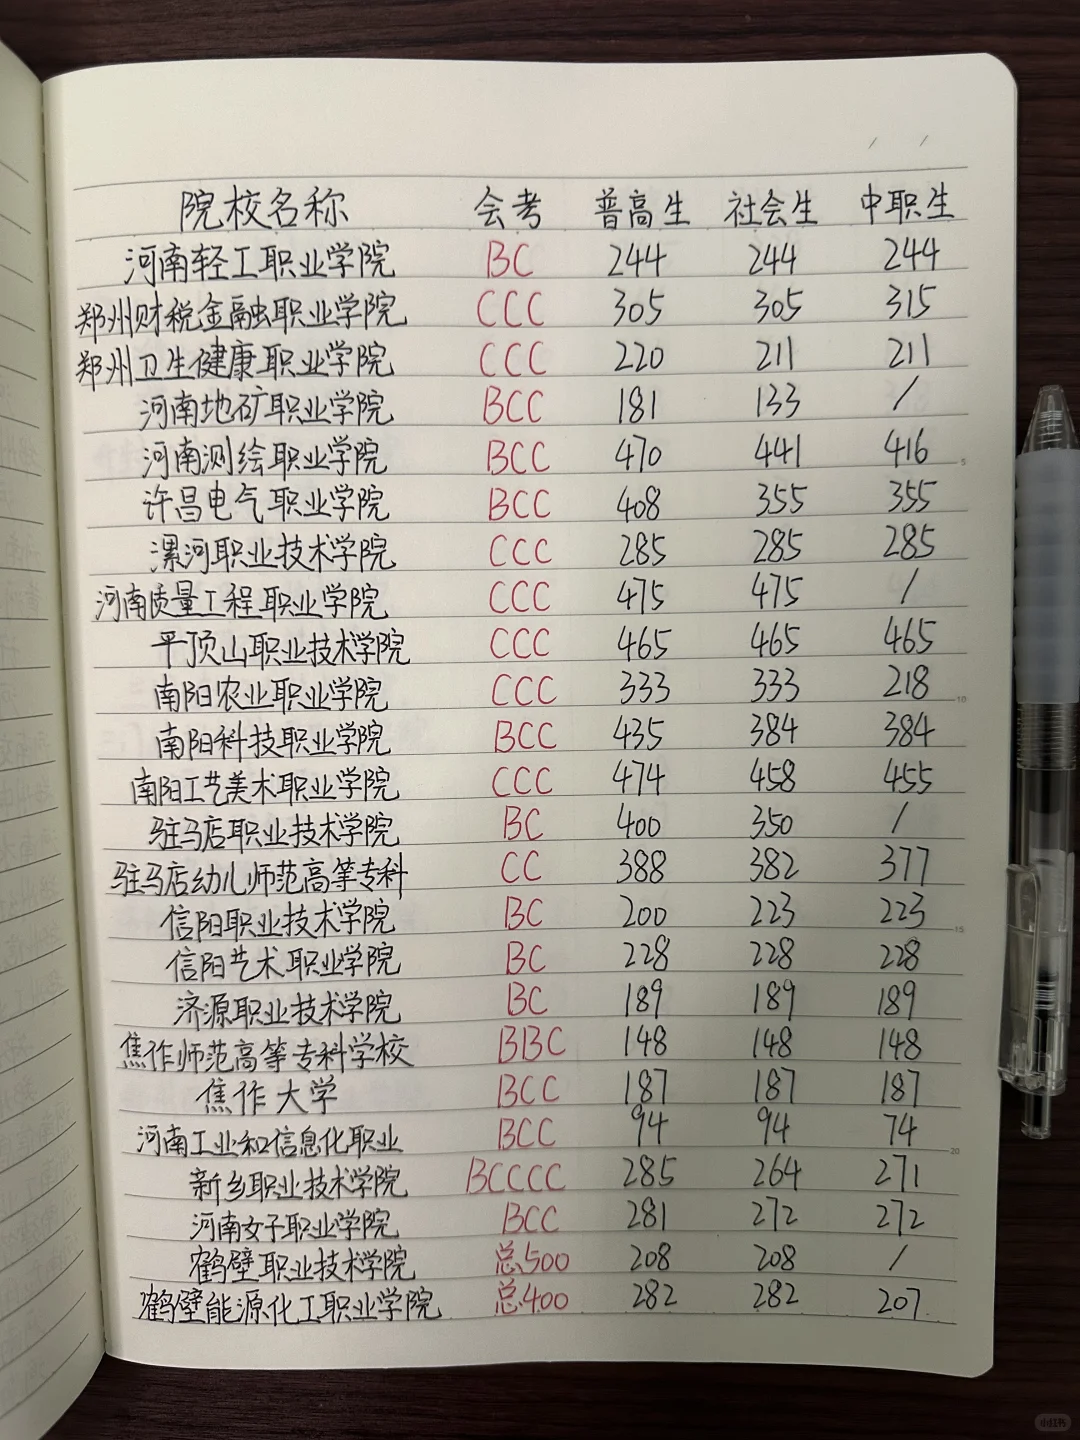 院校名称 会考 普高生 社会生 中职生
河南轻工职业学院 BC 244 244 244
郑州财税金融职业学院 CCC 305 305 315
郑州卫生健康职业学院 CCC 220 211 211
河南地矿职业学院 BCC 181 133 /
河南测绘职业学院 BCC 470 441 416
许昌电气职业学院 BCC 408 355 355
漯河职业技术学院 CCC 285 285 285
河南质量工程职业学院 CCC 475 475 /
平顶山职业技术学院 CCC 465 465 465
南阳农业职业学院 CCC 333 333 218
南阳科技职业学院 BCC 435 384 384
南阳工艺美术职业学院 CCC 474 458 455
驻马店职业技术学院 BC 400 350 /
驻马店幼儿师范高等专科 CC 388 382 377
信阳职业技术学院 BC 200 223 223
信阳艺术职业学院 BC 228 228 228
济源职业技术学院 BC 189 189 189
焦作师范高等专科学校 BBC 148 148 148
焦作大学 BCC 187 187 187
河南工业和信息化职业 BCC 94 94 74
新乡职业技术学院 BCCCC 285 264 271
河南女子职业学院 BCC 281 272 272
鹤壁职业技术学院 总500 208 208 /
鹤壁能源化工职业学院 总400 282 282 207
5
10
15
20
小红书